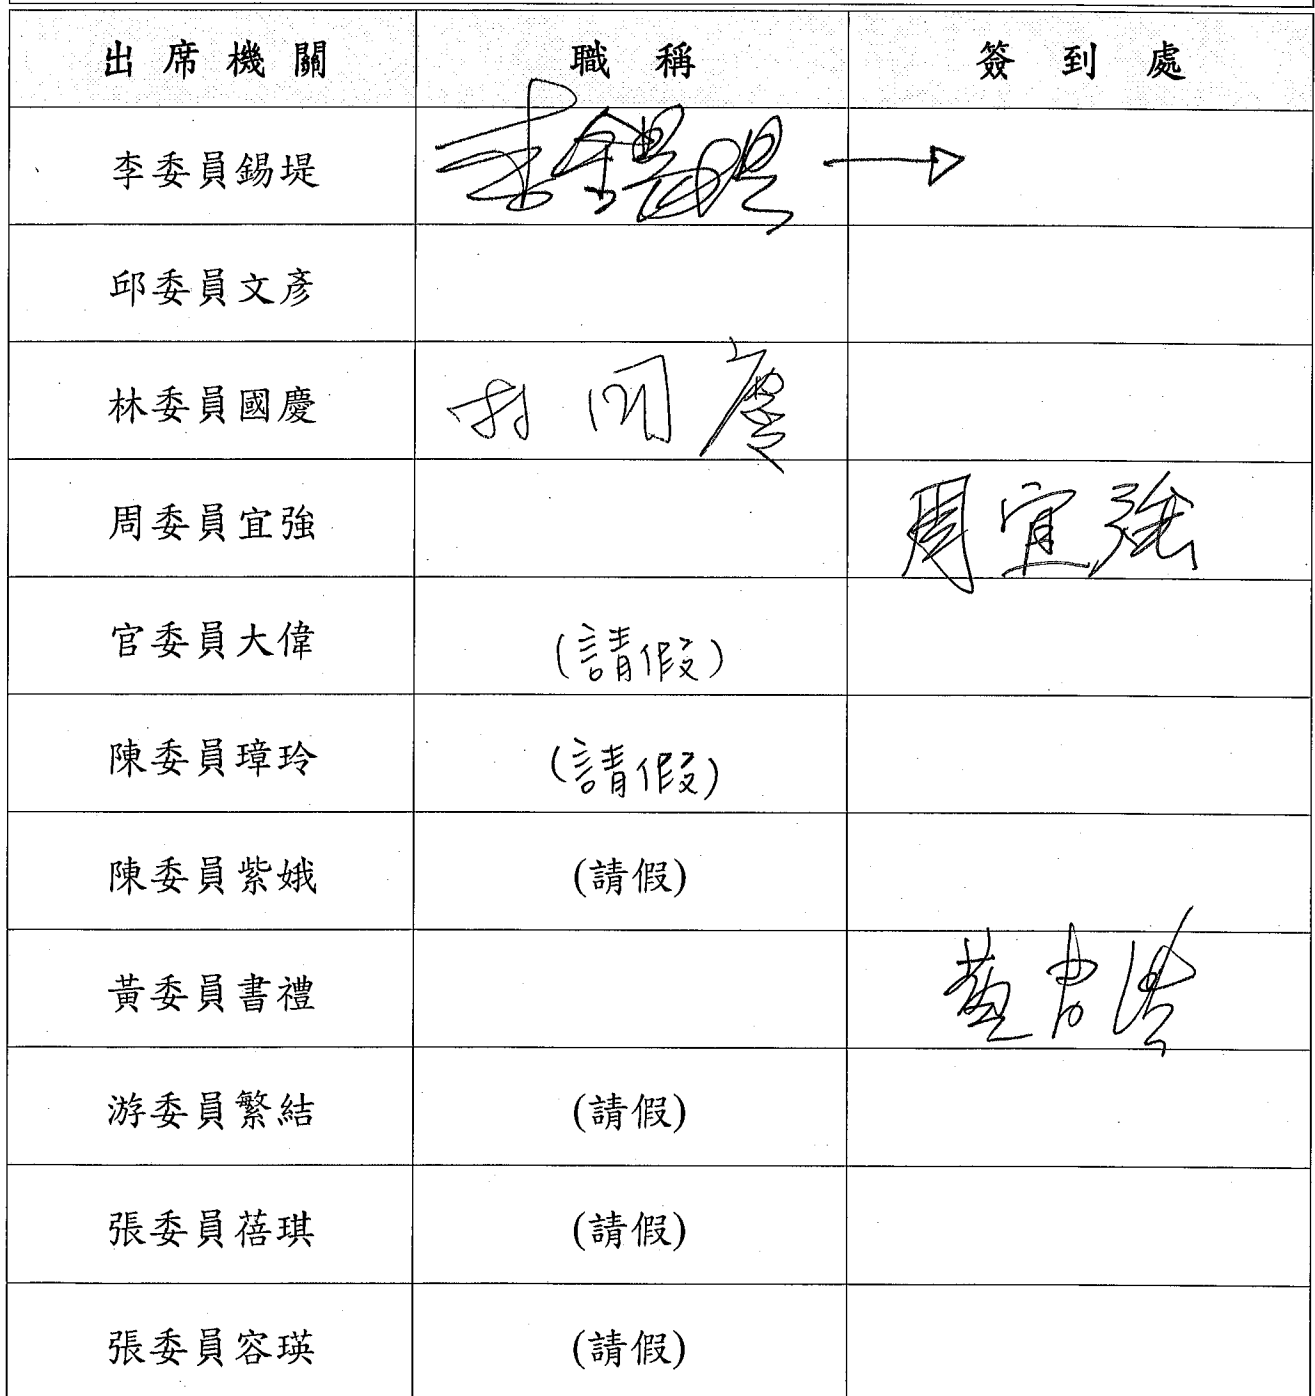 出席機關 職稱 簽到處
李委員錫堤 李錫堤
邱委員文彥
林委員國慶 林國慶
周委員宜強 周宜強
官委員大偉 (請假)
陳委員璋玲 (請假)
陳委員紫娥 (請假)
黃委員書禮 黃書禮
游委員繁結 (請假)
張委員蓓琪 (請假)
張委員容瑛 (請假)